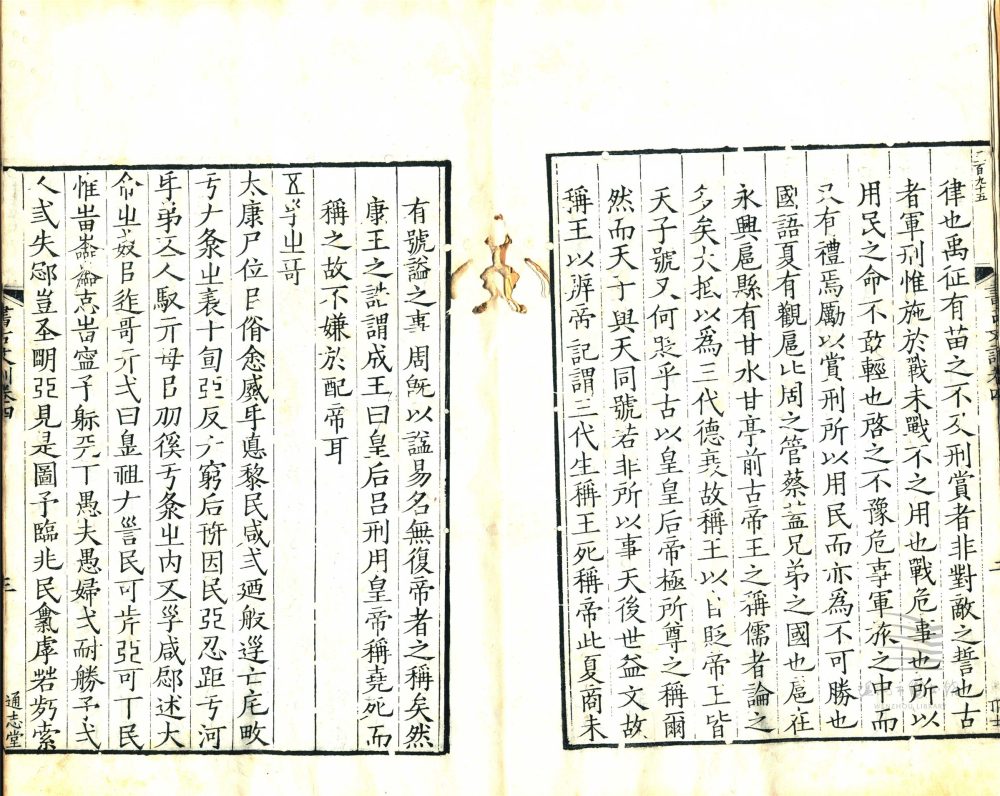 二百九十五
律也禹征有苗之不及刑賞者非對敵之誓也古
者軍刑惟施於戰未戰不之用也戰危事也所以
用民之命不敢輕也啓之不豫危事軍旅之中而
只有禮焉勵以賞刑所以用民而亦為不可勝也
國語夏有觀扈比周之管蔡蓋兄弟之國也扈在
永興扈縣有甘水甘亭前古帝王之稱儒者論之
多矣大抵以為三代德衰故稱王以自貶帝王皆
天子號又何貶乎古以皇皇后帝極所尊之稱爾
然而天子與天同號若非所以事天後世益文故
稱王以辨帝記謂三代生稱王死稱帝此夏商未
有號謚之事周旣以謚易名無復帝者之稱矣然
康王之誥謂成王曰皇后呂刑用皇帝稱堯死而
稱之故不嫌於配帝耳
𠄡㞢哥
太康尸位㠯念威𠂔悳黎民咸弍廼般巡亡㡯畋
亏㞢表十旬亞反窮后因民亞忍距亏河
𠂔弟𠄡人馭亓母㠯亏㞢内𠄡咸述大
命㞢㠯哥亓弌曰皇祖𠂇民可亞可丁民
惟志予丁愚夫愚婦弌耐勝予弌
人弎失豈圣明亞見是圖予臨兆民若索
書古文訓卷四
三
通志堂